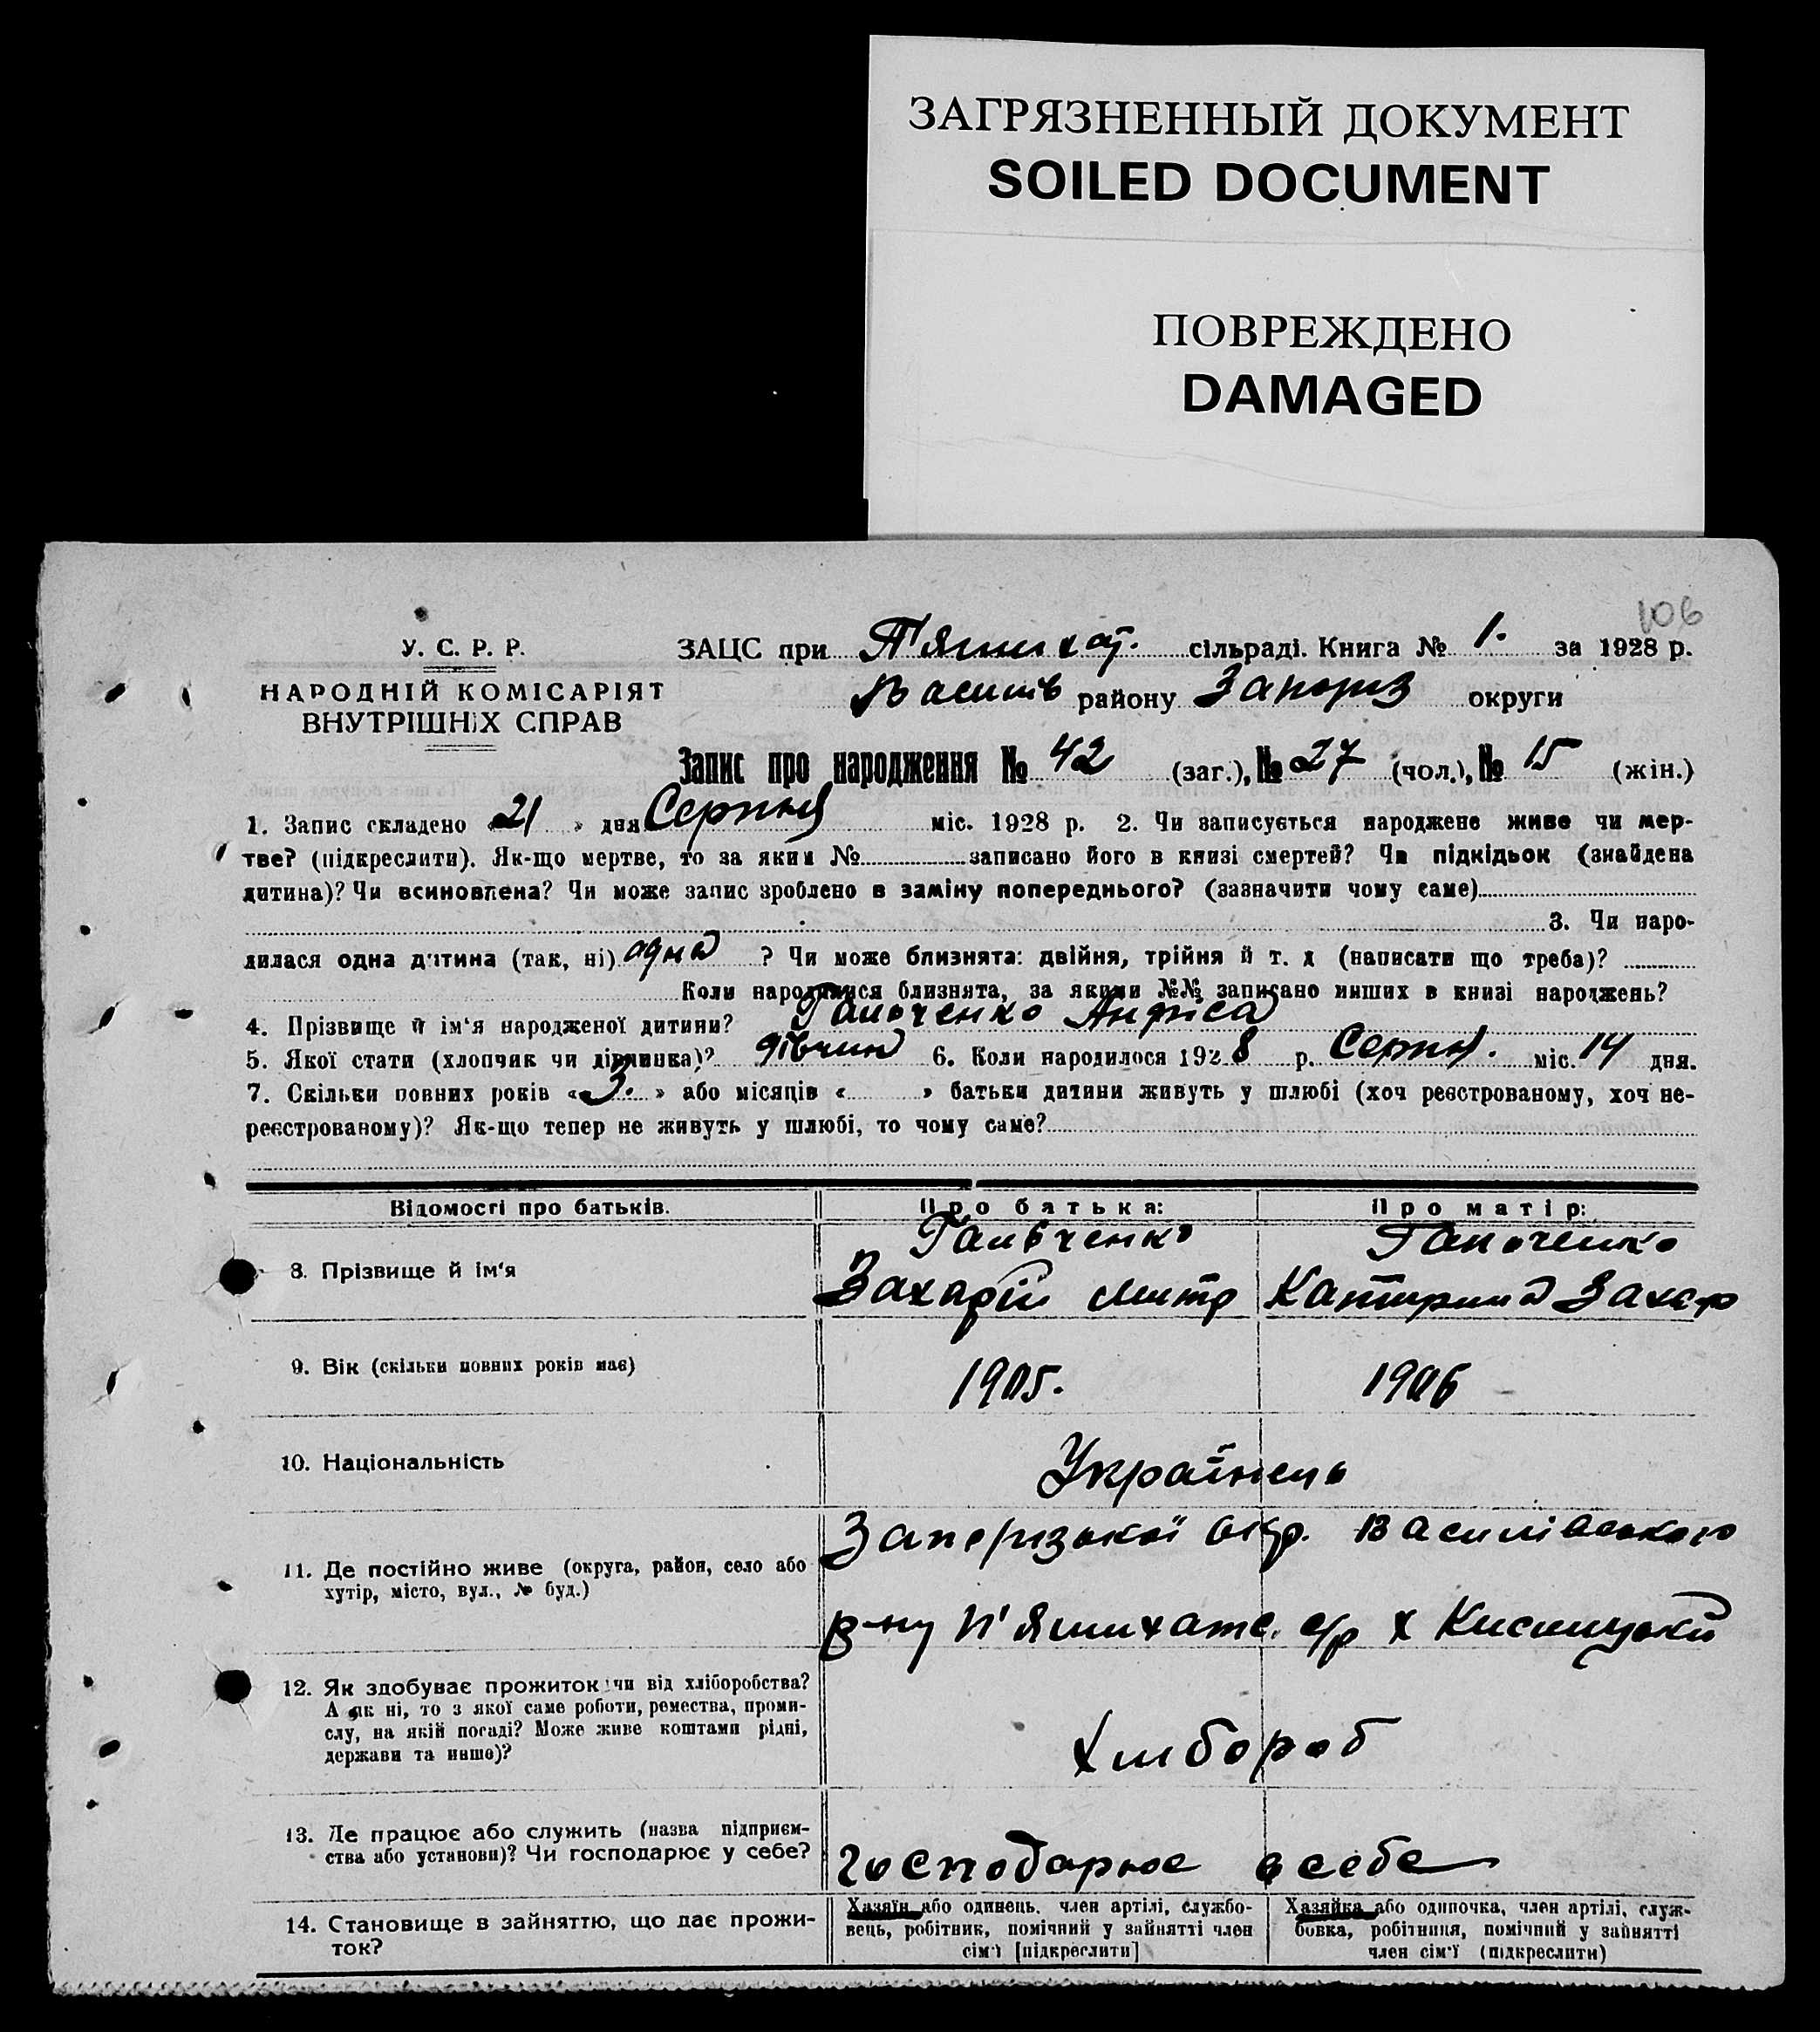 ЗАГРЯЗНЕННЫЙ ДОКУМЕНТ
SOILED DOCUMENT
ПОВРЕЖДЕНО
DAMAGED
106
У. С. Р. Р.
НАРОДНІЙ КОМІСАРІЯТ
ВНУТРІШНІХ СПРАВ
ЗАЦС при П'ятихат. сільраді. Книга № 1. за 1928 р.
Василів району Запоріз округи
Запис про народження № 42 (заг.), № 27 (чол.), № 15 (жін.)
1. Запис складено «21» дня Серпня міс. 1928 р. 2. Чи записується народжене живе чи мер-
тве? (підкреслити). Як-що мертве, то за яким № записано його в книзі смертей? Чи підкідьок (знайдена
дитина)? Чи всиновлена? Чи може запис зроблено в заміну попереднього? (зазначити чому саме)
3. Чи наро-
дилася одна дитина (так, ні) одна ? Чи може близнята: двійня, трійня й т. д (написати що треба)?
Коли народилися близнята, за якими №№ записано инших в книзі народжень?
4. Прізвище й ім'я народженої дитини? Гальченко
5. Якої стати (хлопчик чи дівчинка)? дівчин 6. Коли народилося 1928 р. Серпн. міс. 14 дня.
7. Скільки повних років «3.» або місяців « » батьки дитини живуть у шлюбі (хоч реєстрованому, хоч не-
реєстрованому)? Як-що тепер не живуть у шлюбі, то чому саме?
Відомості про батьків. Про батька: Про матір:
8. Прізвище й ім'я
Гальченко
Захарій Митр
Гальченко
Катерина Захар
9. Вік (скільки повних років має) 1905. 1906
10. Національність Українець
11. Де постійно живе (округа, район, село або
хутір, місто, вул., № буд.)
Запорізької окр. Василівського
р-ну П'ятихатс. с/р х
12. Як здобуває прожиток: чи від хліборобства?
А як ні, то з якої саме роботи, ремества, проми-
слу, на якій посаді? Може живе коштами рідні,
держави та инше)?
Хлібороб
13. Де працює або служить (назва підприєм-
ства або установи)? Чи господарює у себе?
господарює в себе
14. Становище в зайняттю, що дає прожи-
ток?
Хазяїн або одинець, член артілі, службо-
вець, робітник, помічний у зайнятті член
сім'ї [підкреслити]
Хазяйка або одиночка, член артілі, служ-
бовка, робітниця, помічний у зайнятті
член сім'ї (підкреслити)